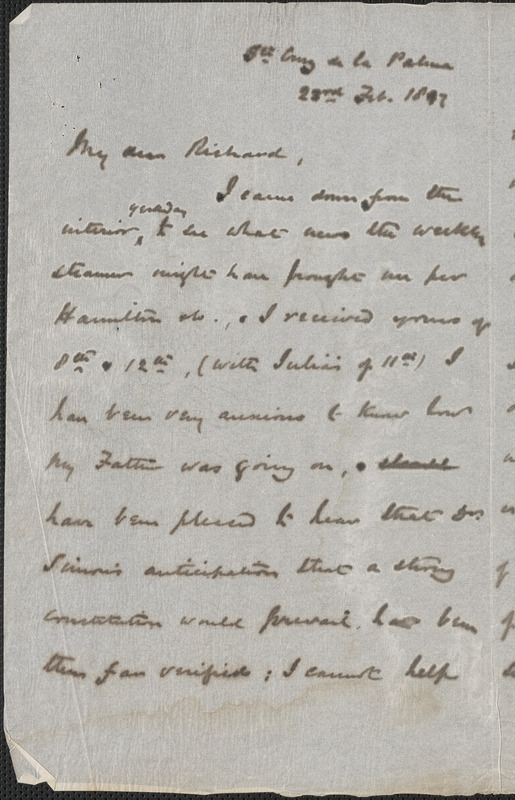 Sta Cruz de la Palma
23rd Feb. 1897
My dear Richard,
I came down from the
yesterday
interior, to see what news the weekly
steamer might have brought me per
Hamilton &c., & I received yours of
8th & 12th, (with Julia's of 11th) I
have been very anxious to know how
my Father was going on, & should
have been pleased to hear that Dr.
Simon's anticipation that a strong
constitution would prevail, has been
thus far verified; I cannot help